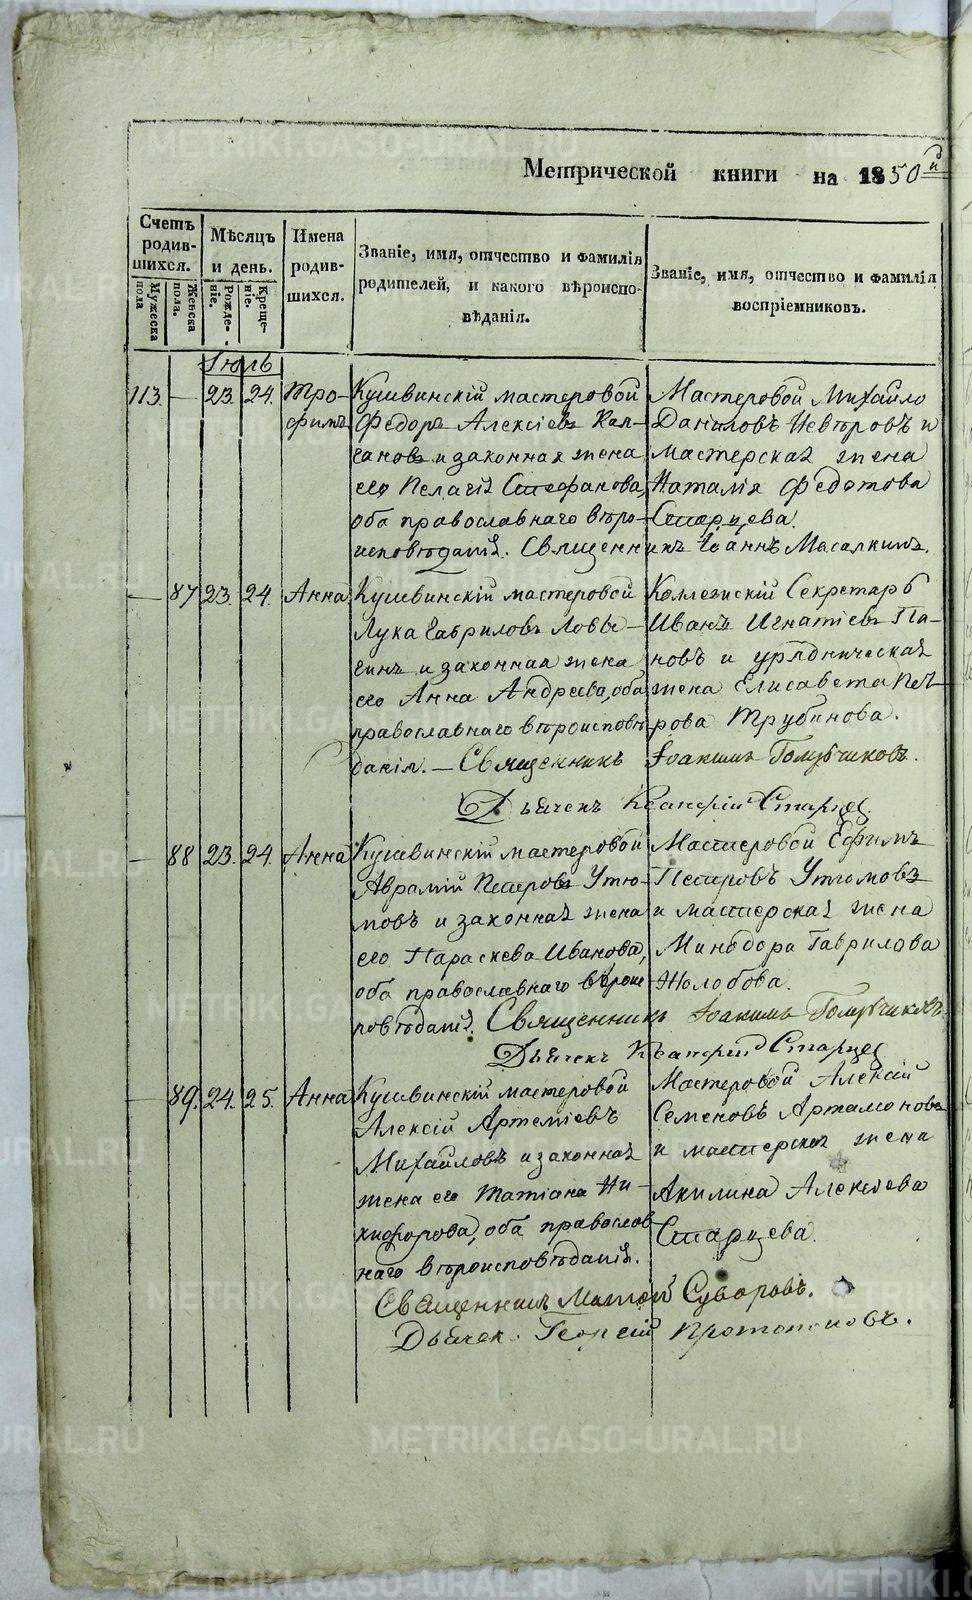 Метрической книги на 1850й
Счетъ родив-шихся.
Мужеска пола
Женска пола.
Мѣсяцъ и день.
Рожде-ніе.
Креще-ніе.
Имена родив-шихся.
Званіе, имя, отчество и фамилія
родителей, и какого вѣроиспо-
вѣданія.
Званіе, имя, отчество и фамилія
воспріемниковъ.
Іюль
113. — 23. 24. Тро-фимъ
Кушвинскій мастеровой
Федоръ Алексіевъ Кал-
гановъ и законная жена
его Пелагія Стефанова,
оба православнаго вѣро-
исповѣданія. Священникъ Іоаннъ Масалкинъ.
Мастеровой Михайло
Даниловъ Невѣровъ и
мастерская жена
Наталія Федотова
Старцева.
— 87 23. 24. Анна
Кушвинскій мастеровой
Лука Гавриловъ Ловы-
гинъ и законная жена
его Анна Андреева, оба
православнаго вѣроисповѣ-
данія. — Священникъ Іоакимъ Голубчиковъ.
Дьячекъ Старцев
Коллежскій Секретарь
Иванъ Игнатіевъ Па-
новъ и урядническая
жена Елисавета Пет-
рова Трубинова.
— 88 23. 24. Анна
Кушвинскій мастеровой
Аврамій Петровъ Утю-
мовъ и законная жена
его Параскева Иванова,
оба православнаго вѣроис-
повѣданія. Священникъ Іоакимъ Голубчиковъ.
Дьячекъ Старцев
Мастеровой Ефимъ
Петровъ Утюмовъ
и мастерская жена
Минодора Гаврилова
Жолобова.
— 89. 24. 25. Анна
Кушвинскій мастеровой
Алексій Артеміевъ
Михайловъ и законная
жена его Татіана Ни-
кифорова, оба православ-
наго вѣроисповѣданія.
Священникъ Матѳій Суворовъ.
Дьячек. Георгій Протопоповъ.
Мастеровой Алексій
Семеновъ Артамоновъ
и мастерская жена
Акилина Алексіева
Старцева.
METRIKI.GASO-URAL.RU